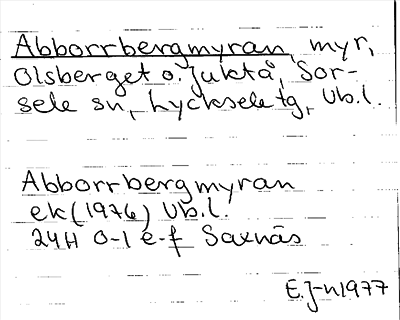 Abborrbergmyran, myr,
Olsberget o. Juktå, Sor-
sele sn, Lycksele tg, Vb.l.
Abborrbergmyran
ek (1976) Vb.l.
24H 0-1 e-f Saxnäs
E.J-n 1977